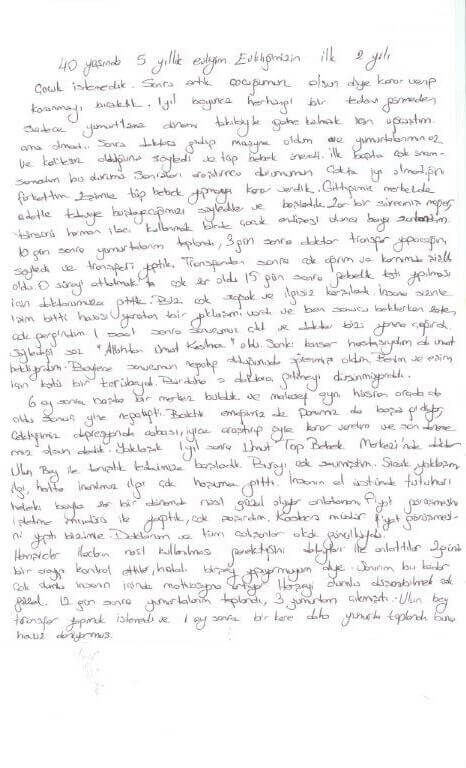 40 yaşında 5 yıllık evliyim. Evliliğimizin ilk 2 yılı
Çocuk istemedik. Sonra artık çocuğumuz olsun diye karar verip
korunmayı bıraktık. 1 yıl boyunca herhangi bir tedavi görmeden
sadece yumurtlama dönemi takibiyle gebe kalmak için uğraştım
ama olmadı. Sonra doktora gidip muayene oldum ve yumurtalarımın az
ve kalitesiz olduğunu söyledi ve tüp bebek önerdi. İlk başta çok
bu duruma. Sonraları araştırınca durumumun çokta iyi olmadığını
farkettim. Eşimle tüp bebek yapmaya karar verdik. Gittiğimiz merkezde
tedaviye başlayacağımızı söylediler ve başladık. Zor bir süreçmiş
hormon ilacı kullanmak birde çocuk endişesi olunca baya
10 gün sonra yumurtalarım toplandı, 3 gün sonra doktor transfer yapacağını
söyledi ve transferi yaptık. Transferden sonra çok ağrım ve karnımda şişlik
oldu. O süreyi atlatmak çok zor oldu 15 gün sonra gebelik testi yapılması
için doktorumuza gittik. Bizi çok soğuk ve ilgisiz karşıladı. İnsanı sizinle
işim bitti havası yaratan bir yaklaşımı vardı ve ben sonucu beklerken zaten
çok gergindim 1 saat sonra sonucumuz çıktı ve doktor bizi yanına çağırdı.
Söylediği söz "Allahtan Umut Kesilmez" oldu. Sanki kanser hastasıydım da umut
bekliyordum. Böylece sonucumun negatif olduğunuda öğrenmiş oldum. Benim ve eşim
için kötü bir tecrübeydi. Birdaha o doktora gitmeyi düşünmüyorduk.
6 ay sonra başka bir merkez bulduk ve malesef aynı hüsran orada da
oldu sonuç yine negatifti. Baktık emeğimiz de paramız da boşa gidiyor,
Çektiğimiz depresyonda cabası, iyice araştırıp öyle karar verelim ve son deneme-
miz olsun dedik. Yaklaşık 1 yıl sonra Umut Tüp Bebek Merkezi'nde doktor
Ulun Bey ile tanıştık tedavimize başladık. Burayı çok sevmiştim. Sıcak yaklaşım
ilgi, hatta inanılmaz ilgi çok hoşuma gitti. İnsanın el üstünde tutulması
hele böyle zor bir dönemde nasıl güzel oluyor anlatamam. Fiyat görüşmesini
işletme müdürü ile yaptık, çok şaşırdım. Koskoca müdür fiyat görüşmesi-
ni yaptı bizimle. Doktorum ve tüm çalışanlar çok güleryüzlüydü.
Hemşireler ilaçların nasıl kullanılması gerektiğini detayları ile anlattılar 2 günde
bir arayıp kontrol ettiler, hatalı birşey yapıyormuyum diye. Sanırım bu kadar
çok olunca insanın içinde motivasyonu artıyor. Herşeyi olumlu düşünebilmek çok
güzel. 12 gün sonra yumurtalarım toplandı, 3 yumurtam çıkmıştı. Ulun bey
transfer yapmak istemedi ve 1 ay sonra bir kere daha yumurta toplandı buna
havuz deniyormuş.